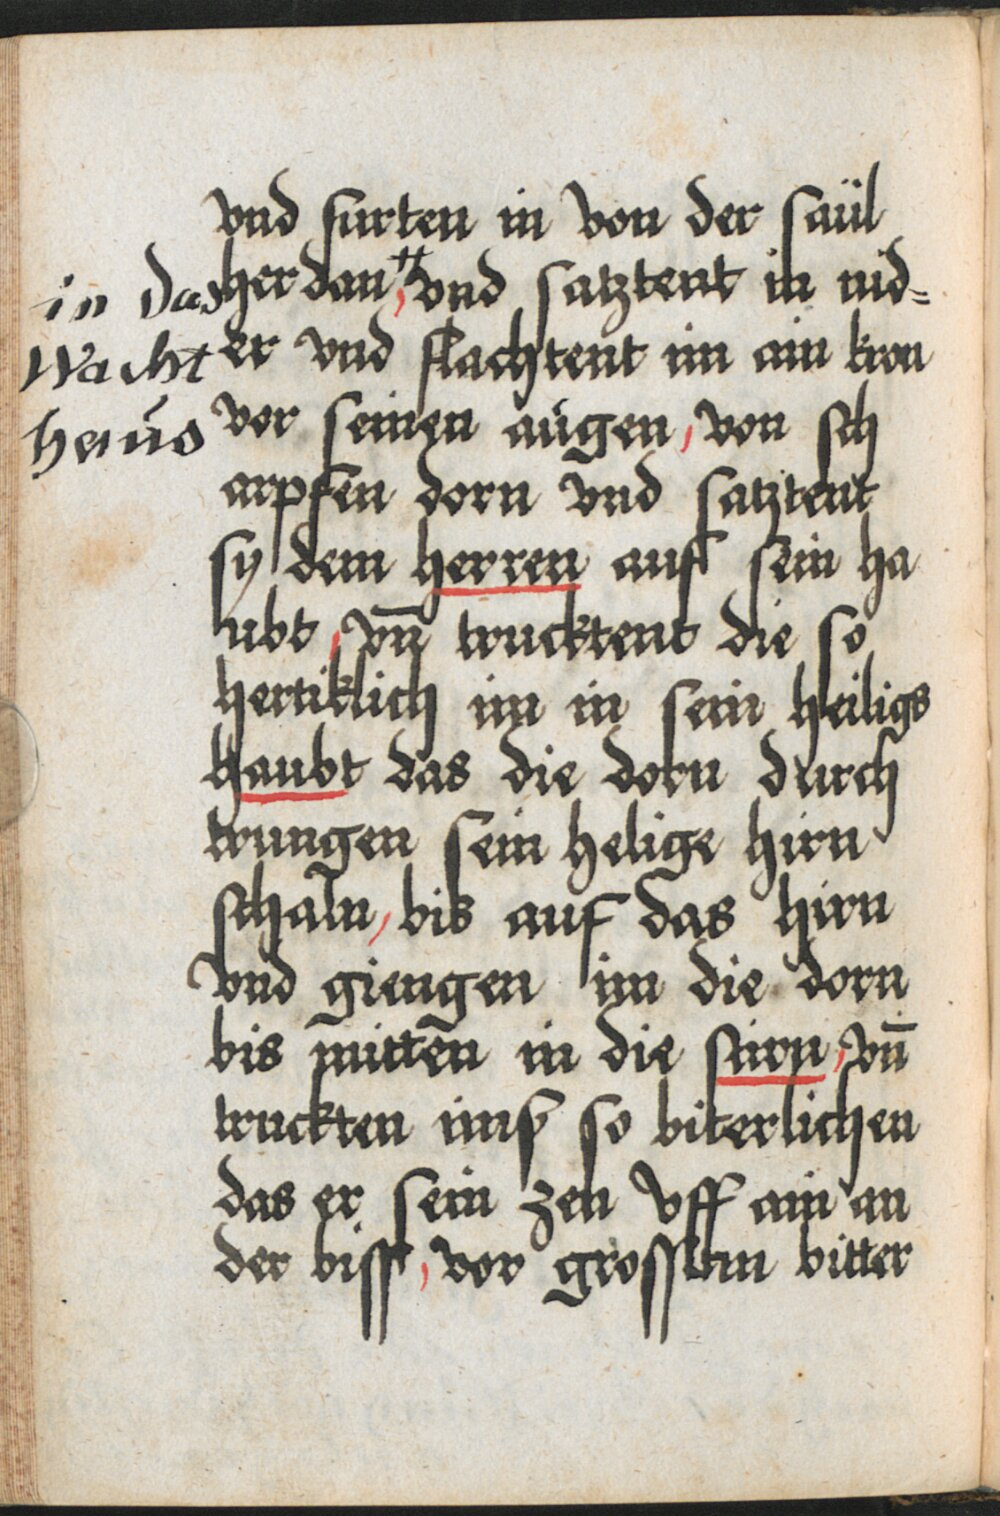 vnd furten in von der saül
herdan vnd satztent in nid=
er vnd flachtent im ain kron
vor seinen augen, von sch
arpfen dorn vnd satztent
sy dem herren auf sein ha
ubt, vn̄ trucktent die so
hertiklich im in sein heiligs
haubt das die dorn durch
trungen sein helige hirn
schaln, bis auf das hirn
vnd giengen im die dorn
bis mitten in die stirn, vn̄
truckten ims so biterlichen
das er sein zen vff ain an
der biss, vor grossem bitter
in das
Wacht
haus